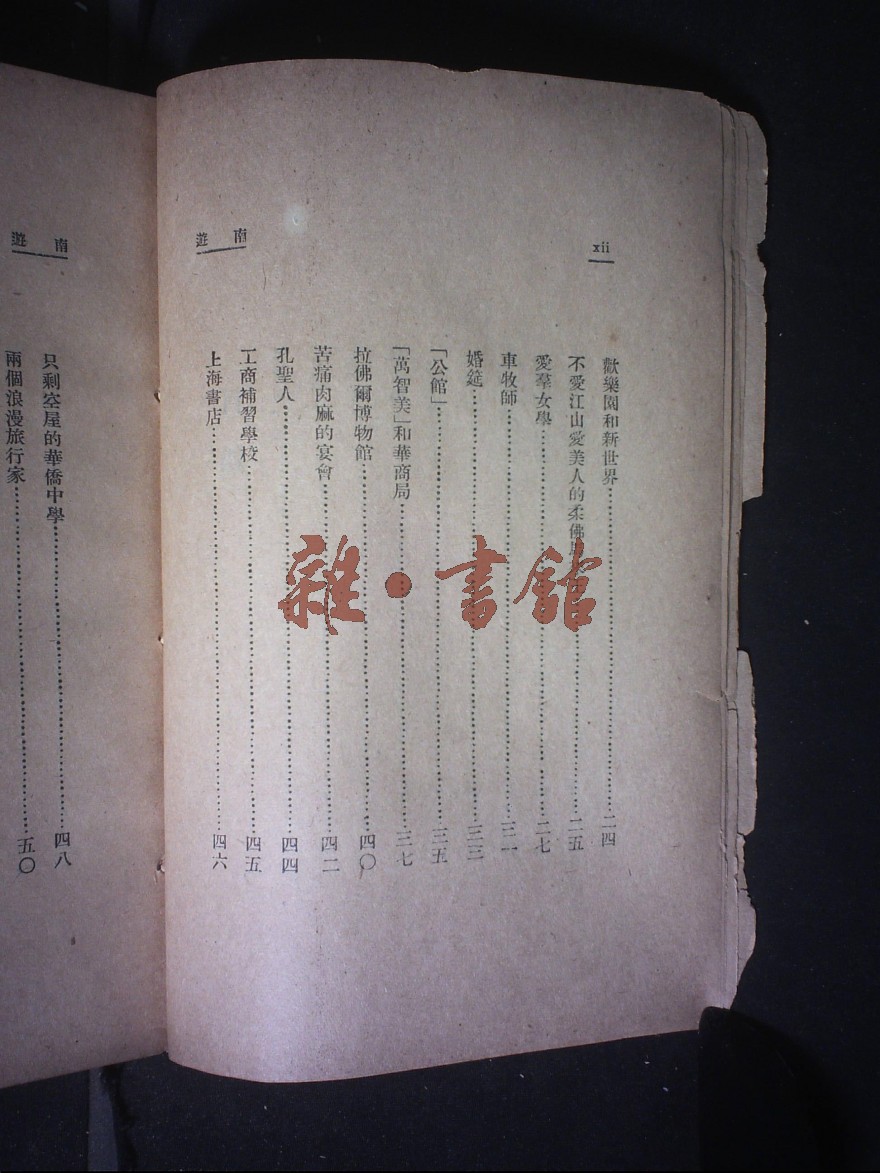 xii
南遊
歡樂園和新世界……二四
不愛江山愛美人的柔佛……二五
愛羣女學……二七
車牧師……三一
婚筵……三三
「公館」……三五
「萬智美」和華商局……三七
拉佛爾博物館……四〇
苦痛肉麻的宴會……四二
孔聖人……四四
工商補習學校……四五
上海書店……四六
南遊
只剩空屋的華僑中學……四八
兩個浪漫旅行家……五〇
雜·書館